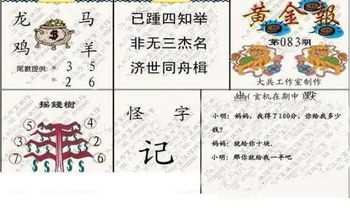 龙 马
鸡 羊
尾數提供: 3 5
2 6
已踵四知举
非无三杰名
济世同舟楫
黄金報
第083期
大兵工作室制作
摇錢樹
5 1
0 2
7 6
怪字
记
玄机在期中
小明: 妈妈, 我得了100分, 你给我多少
钱?
妈妈: 就给你十块.
小明: 那你就给我一半吧